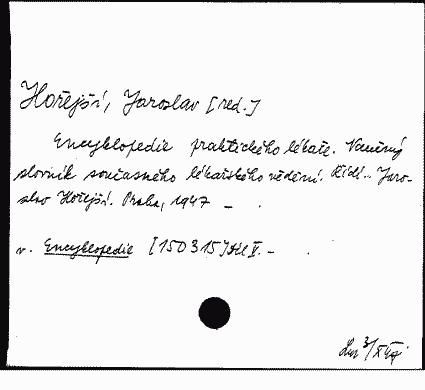 Hořejší, Jaroslav [red.]
Encyklopedie praktického lékaře. Naučný
slovník současného lékařského vědění. Řídí.. Jaro-
slav Hořejší. Praha, 1947 –
v. Encyklopedie [150315] díl V. –
3/X 49